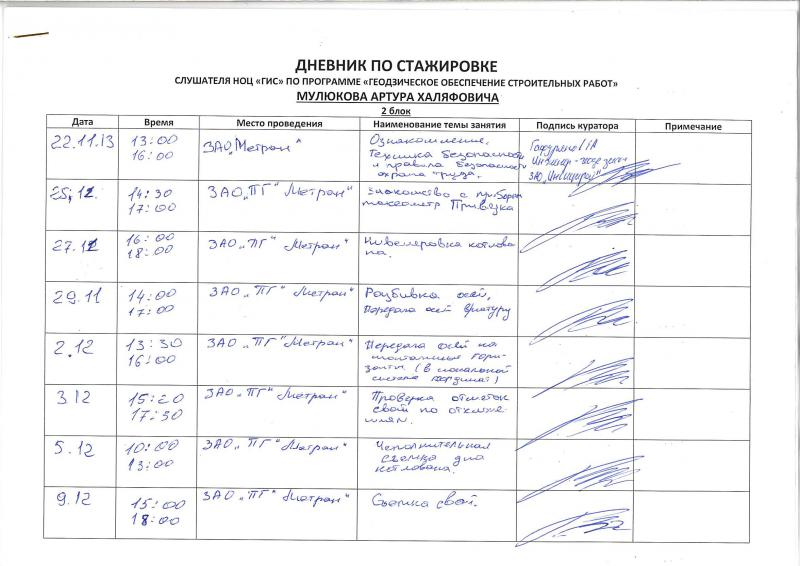 ДНЕВНИК ПО СТАЖИРОВКЕ
СЛУШАТЕЛЯ НОЦ «ГИС» ПО ПРОГРАММЕ «ГЕОДЗИЧЕСКОЕ ОБЕСПЕЧЕНИЕ СТРОИТЕЛЬНЫХ РАБОТ»
МУЛЮКОВА АРТУРА ХАЛЯФОВИЧА
2 блок
Дата Время Место проведения Наименование темы занятия Подпись куратора Примечание
22.11.13 13:00 ЗАО „Метран“ Ознакомление.
16:00 Техника безопасности
и правила безопасности
охрана труда.
Инженер-геодезист
ЗАО
14:30 ЗАО „ПГ“ Метран“ Знакомство с прибором
17:00 тахеометр Привязка
16:00 ЗАО „ПГ“ Метран“ Нивелировка котлова
18:00 на.
29.11 14:00 ЗАО „ПГ“ Метран“ Разбивка осей,
17:00 Передача осей
2.12 13:30 ЗАО „ПГ“ Метран“ Передача осей на
16:00 монтажные гори-
зонты (в локальной
системе координат)
3.12 15:20 ЗАО „ПГ“ Метран“ Проверка отметок
свай по
5.12 10:00 ЗАО „ПГ“ Метран“ Исполнительная
13:00 съемка дна
котлована.
9.12 15:00 ЗАО „ПГ“ Метран“ Съемка свай.
18:00